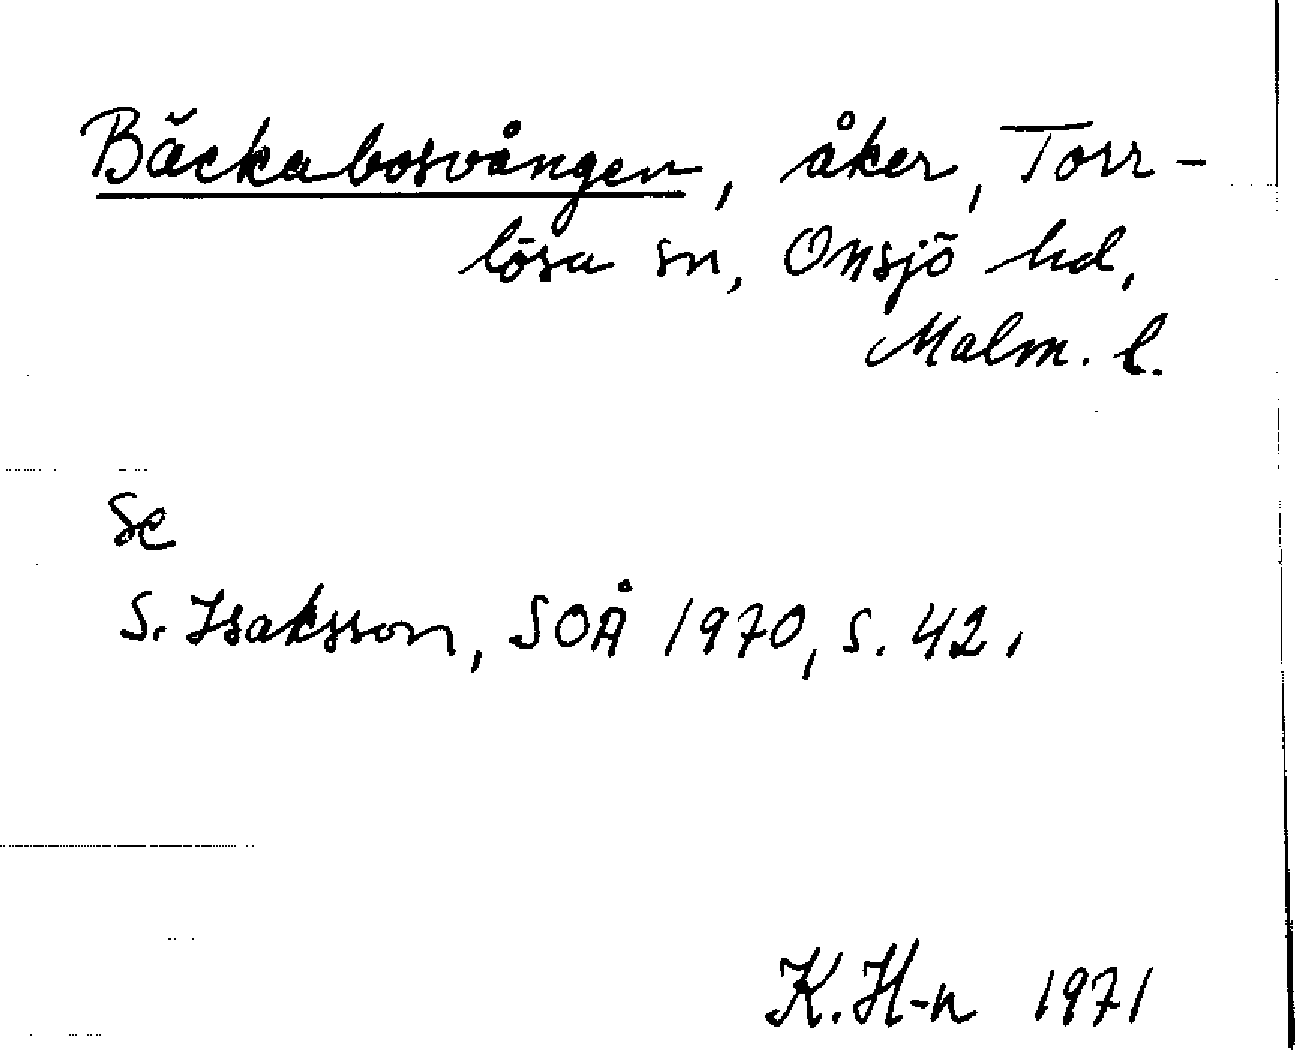 Bäckabosvången, åker, Torr-
lösa sn, Onsjö hd,
Malm. l.
Se
S. Isaksson, SOÅ 1970, s. 42.
K. H-n 1971